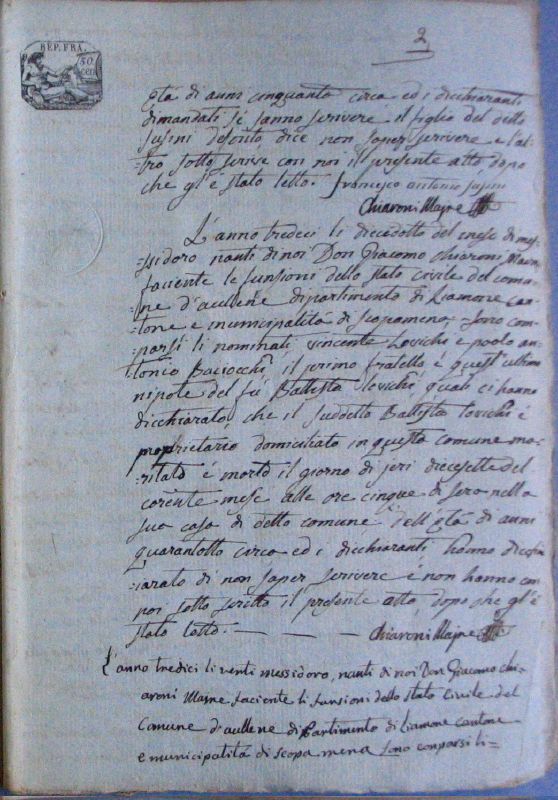 2
REP. FRA.
50
cen
età di anni cinquanta circa ed i dicchiaranti
dimandati se sanno scrivere il figlio del detto
susini defonto dice non saper scrivere e l'al-
-tro sotto scrive con noi il presente atto dopo
che gl'è stato letto. francesco antonio susini
Chiaroni Majre
L'anno tredeci li diecedotto del mese di me-
-ssidoro nanti di noi Don Giacomo chiaroni Majre
faciente le funsioni dello stato civile del comu-
-ne d'aullene dipartimento di Liamone can-
-tone e municipalità di scopamena, sono com-
parsi li nominati vincente Lovichi e paolo an-
-tonio Baciocchi, il primo fratello e quest'ultimo
nipote del fù Battista Lovichi, quali ci hanno
dicchiarato, che il suddetto Battista lovichi è
proprietario domiciliato in questa comune ma-
-ritato é morto il giorno di jeri diecesette del
corente mese alle ore cinque di sera nella
sua casa di detto comune dell'età di anni
quarantotto circa ed i dicchiaranti hanno dicchi-
iarato di non saper scrivere é non hanno con
noi sotto scritto il presente atto, dopo che gl'è
stato letto. — — — Chiaroni Majre
L'anno tredici li venti messidoro, nanti di noi Don Giacomo chi-
aroni Majre faciente li funsioni dello stato civile del
Comune d'aullene di Partimento di Liamone cantone
e municipalità di scopa mena sono comparsi li=